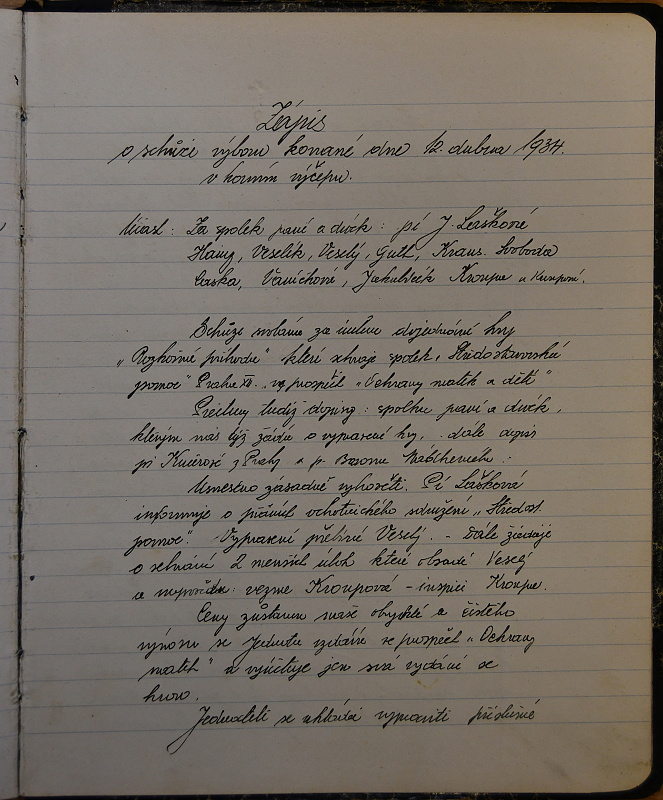 Zápis
o schůzi výboru konané dne 12. dubna 1934.
v horním výčepu.
Účast: Za spolek paní a dívek: pí J. Laškové
Hamp, Veselík, Veselý, Guth, Kraus, Svoboda
Laska, Vaníchové, Jakubíček Kroupa a Kroupová.
Schůze svolána za účelem dojednání hry
které sehraje spolek „Středostavovská
pomoc" Praha XII. ve prospěch „Ochrany matek a dětí"
Přečteny tudíž dopisy: spolku paní a dívek,
kterým nás týž žádá o vypravení hry, dále dopis
pí z Prahy a p.
Usneseno zásadně vyhověti. Pí Lašková
informuje o ochotnického sdružení „Středost.
pomoc". Vypravení Veselý. - Dále žádají
o sehrání 2 menších úloh které obsadí Veselý
a vezme Kroupová - inspici Kroupa.
Ceny zůstanou naše obvyklé a čistého
výnosu se Jednota vzdává ve prospěch „Ochrany
matek" a vyúčtuje jen svá vydání se
hrou.
Jednateli se ukládá vypraviti příslušné